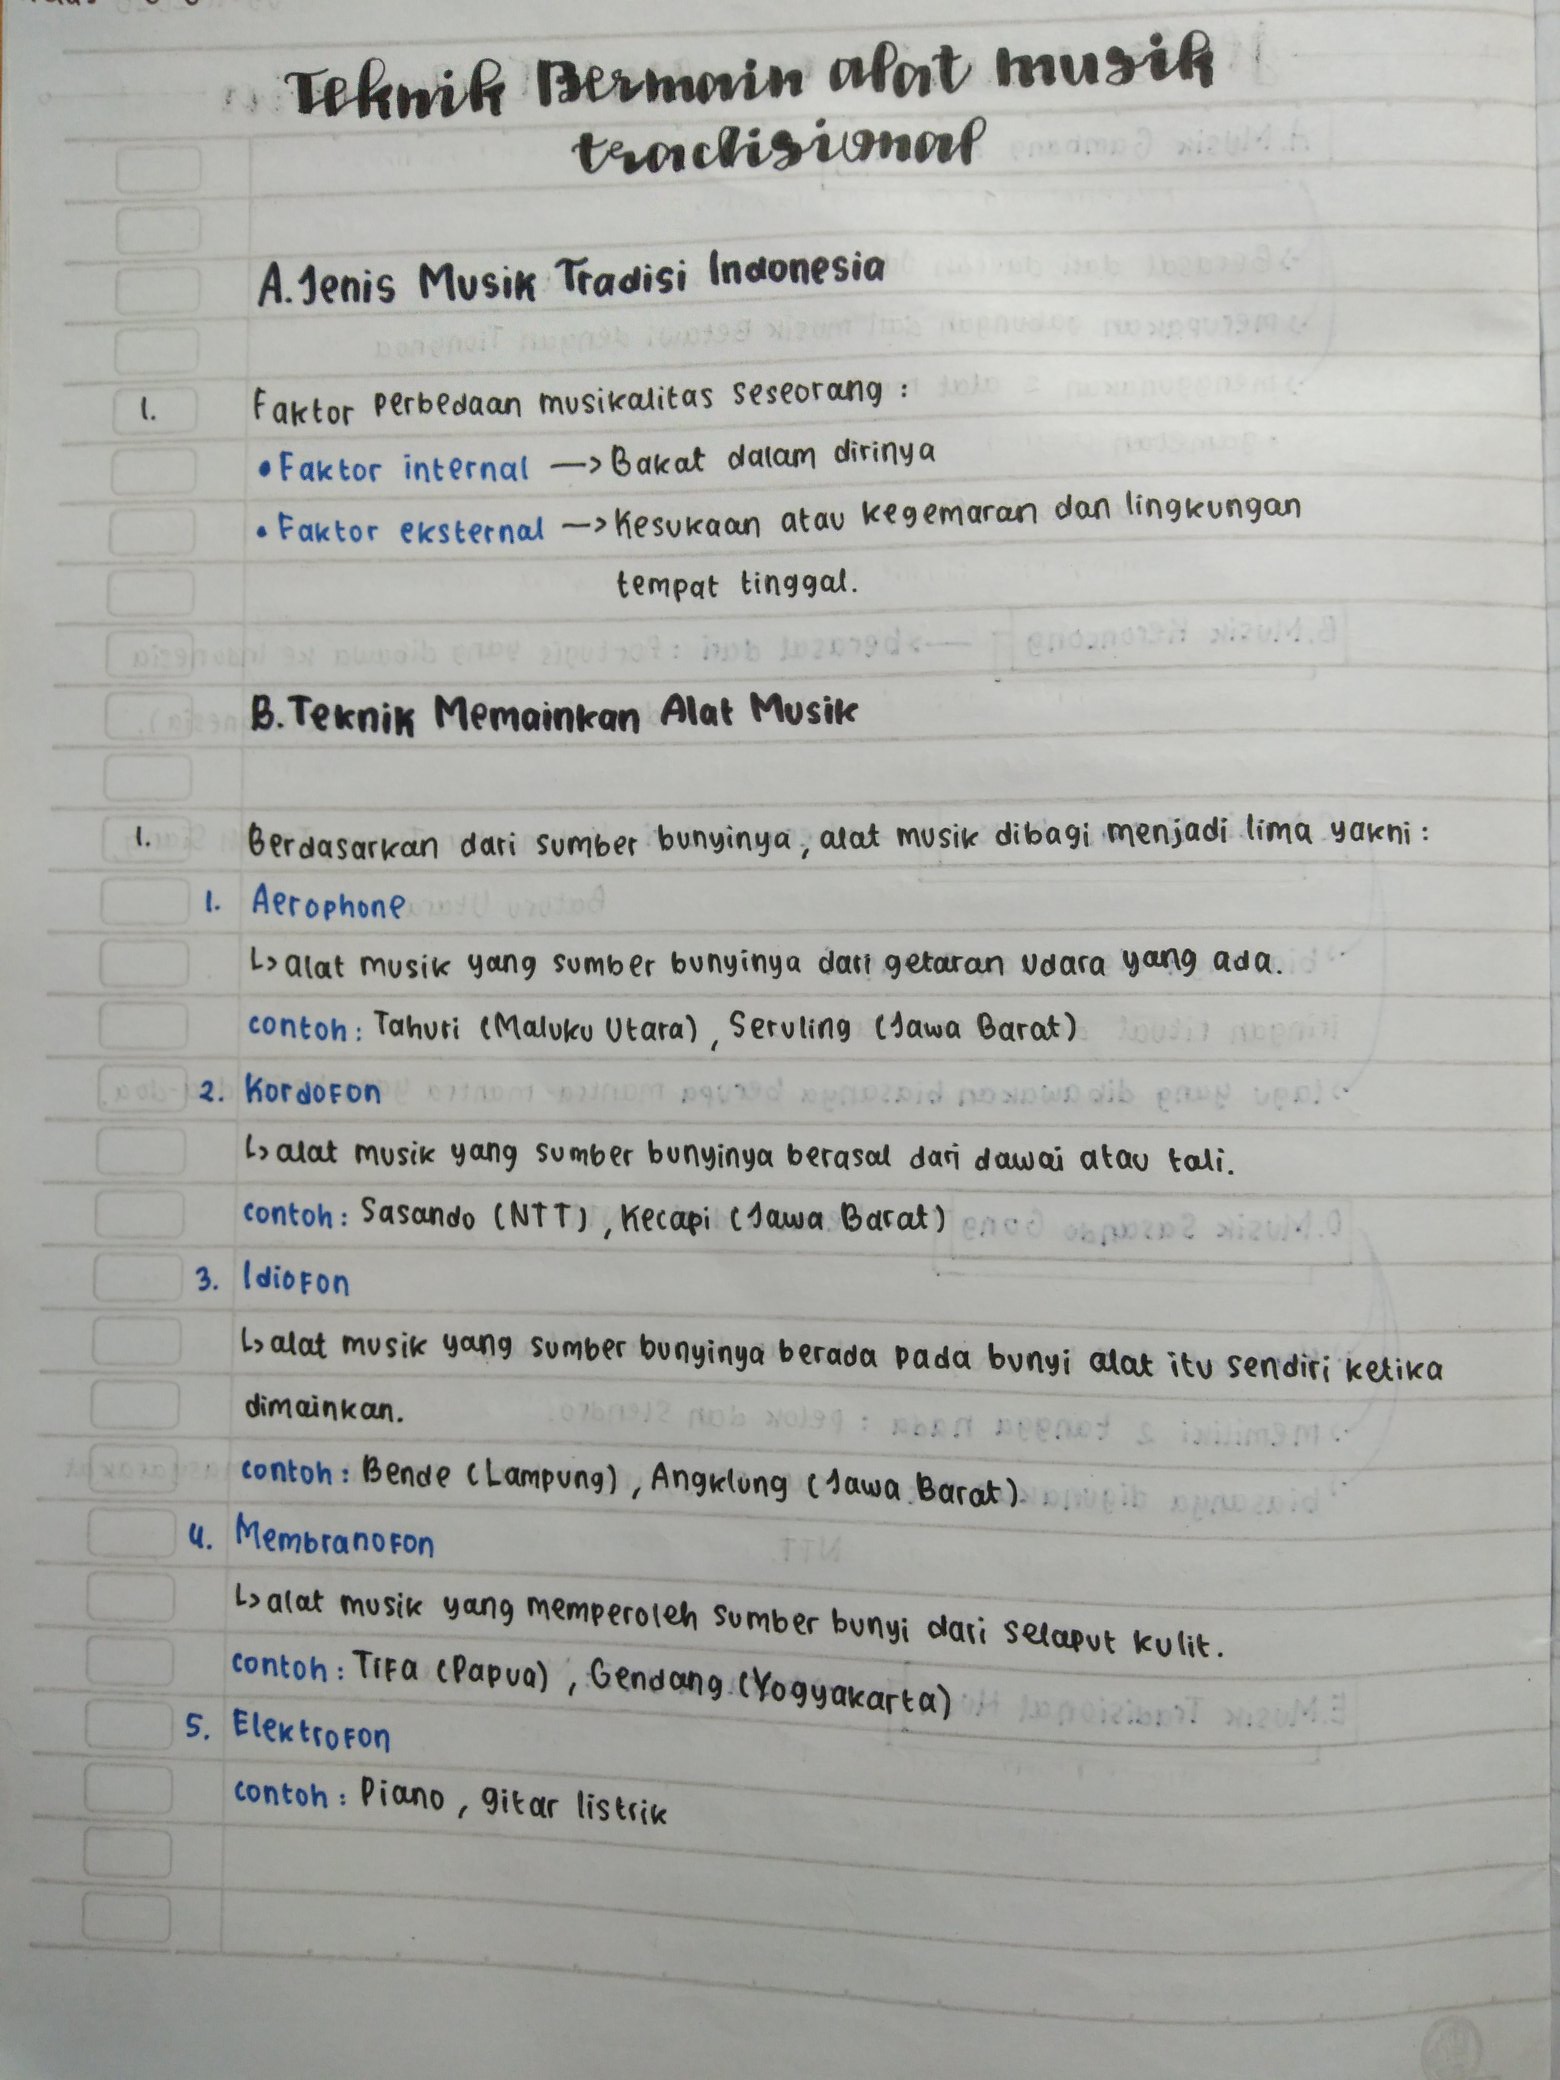 Teknik Bermain alat musik
tradisional
A. Jenis Musik Tradisi Indonesia
1. Faktor perbedaan musikalitas seseorang :
• Faktor internal —> Bakat dalam dirinya
• Faktor eksternal —> Kesukaan atau kegemaran dan lingkungan
tempat tinggal.
B. Teknik Memainkan Alat Musik
1. Berdasarkan dari sumber bunyinya, alat musik dibagi menjadi lima yakni :
1. Aerophone
↳ alat musik yang sumber bunyinya dari getaran udara yang ada.
contoh : Tahuri (Maluku Utara), Seruling (Jawa Barat)
2. Kordofon
↳ alat musik yang sumber bunyinya berasal dari dawai atau tali.
contoh : Sasando (NTT), Kecapi (Jawa Barat)
3. Idiofon
↳ alat musik yang sumber bunyinya berada pada bunyi alat itu sendiri ketika
dimainkan.
contoh : Bende (Lampung), Angklung (Jawa Barat)
4. Membranofon
↳ alat musik yang memperoleh sumber bunyi dari selaput kulit.
contoh : Tifa (Papua), Gendang (Yogyakarta)
5. Elektrofon
contoh : Piano, gitar listrik